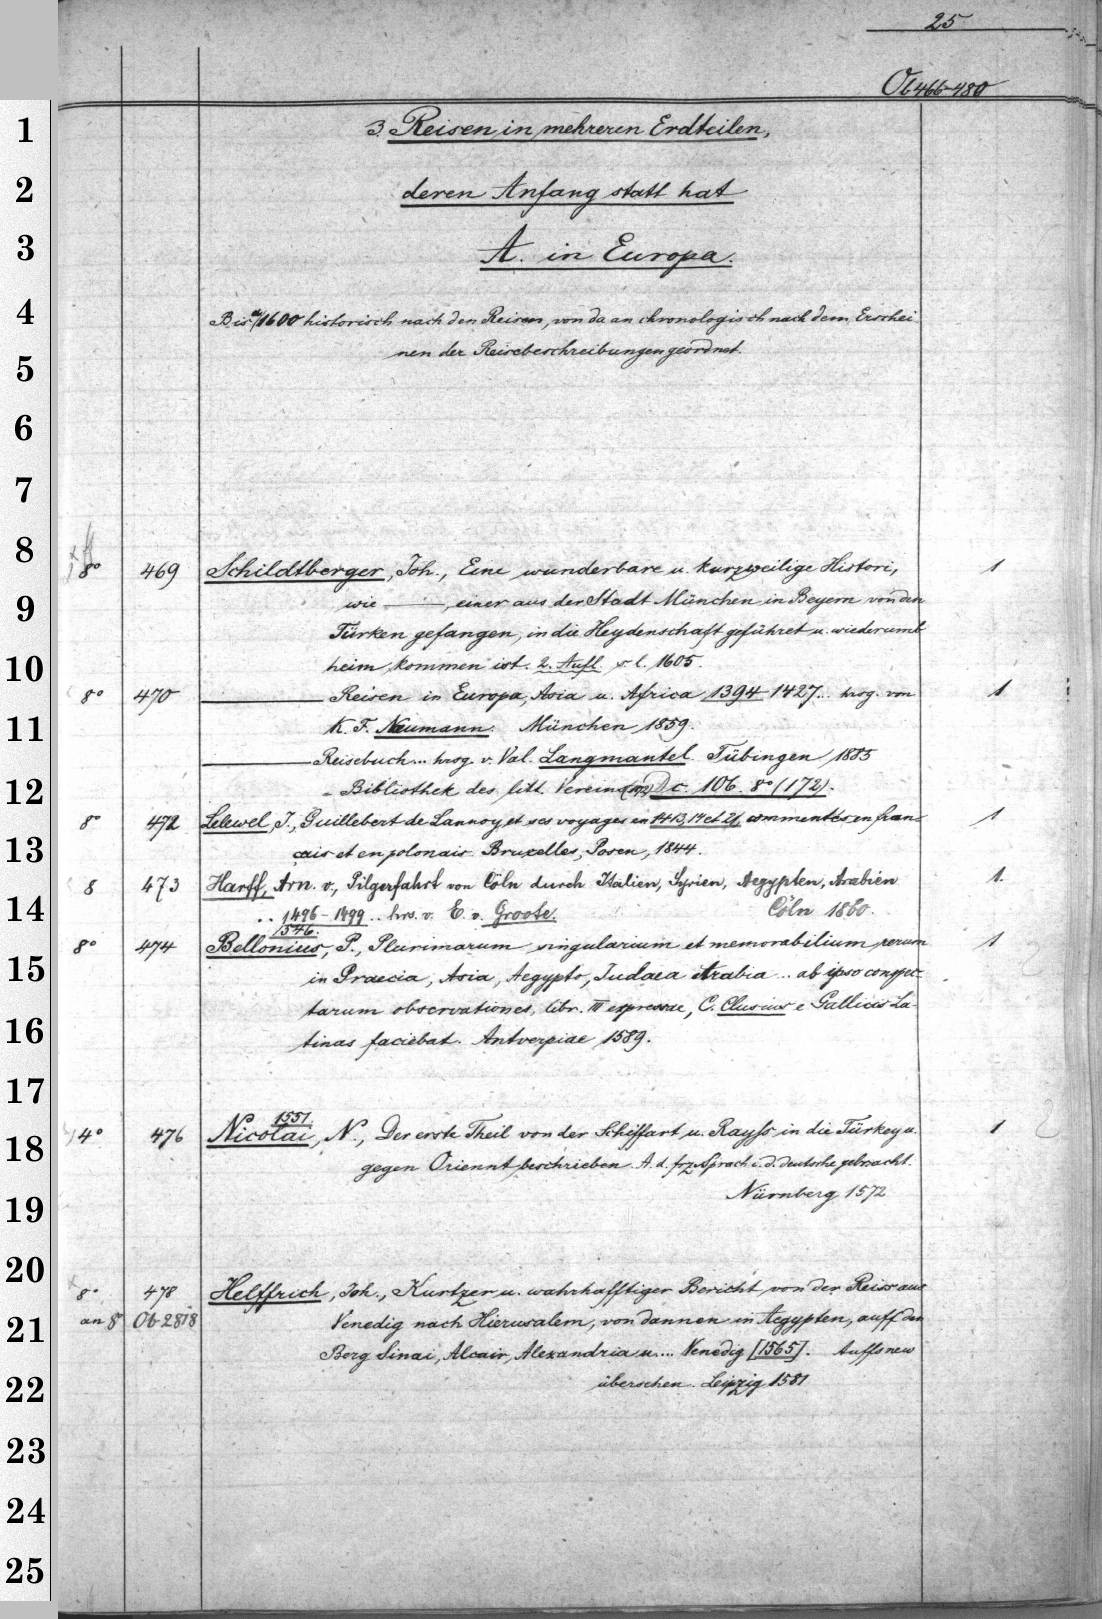 25
Ob 466-480
1
3. Reisen in mehreren Erdteilen,
2
deren Anfang statt hat
3
A. in Europa.
4
Bis 1600 historisch nach den Reisen, von da an chronologisch nach dem Erschei
5
nen der Reisebeschreibungen geordnet.
6
7
8
8° 469 Schildtberger, Joh., Eine wunderbare u. kurzweilige Histori, 1
9
wie ——, einer aus der Stadt München in Beyern von den
Türken gefangen, in die Heydenschaft geführet u. wiederumb
10
heim kommen ist. 2. Aufl. s. l. 1605.
8° 470 —— Reisen in Europa, Asia u. Africa 1394-1427.. hrsg. von 1
11
K. F. Neumann. München 1859.
—— Reisebuch... hrsg. v. Val. Langmantel. Tübingen 1885
12
= Bibliothek des litt. Vereins Dc. 106. 8° (172).
8° 472 Lelewel, J., Guillebert de Lannoy et ses voyages en 1413,14 et 21, commentés en fran= 1
13
çais et en polonais. Bruxelles, Posen, 1844.
8 473 Harff, Arn. v., Pilgerfahrt von Cöln durch Italien, Syrien, Aegypten, Arabien 1.
14
.. 1496-1499.. hrs. v. E. v. Groote. Cöln 1860.
1546.
8° 474 Bellonius, P., Plurimarum singularium et memorabilium rerum 1
15
in Graecia, Asia, Aegypto, Iudaea Arabia .. ab ipso conspec-
tarum observationes, libr. III expressae, C. Clusius e Gallicis La-
16
tinas faciebat. Antverpiae 1589.
17
1551.
4° 476 Nicolai, N., Der erste Theil von der Schiffart u. Rayss in die Türkey u. 1
18
gegen Oriennt beschrieben. A. d. frz Sprach i. d. deutsche gebracht.
19
Nürnberg 1572
20
8° 478 Helffrich, Joh., Kurtzer u. wahrhafftiger Bericht von der Reiss aus
21
an 8° Ob 2818 Venedig nach Hierusalem, von dannen in Aegypten, auff den
Berg Sinai, Alcair, Alexandria u.... Venedig [1565]. Auffs new
22
übersehen. Leipzig 1581
23
24
25